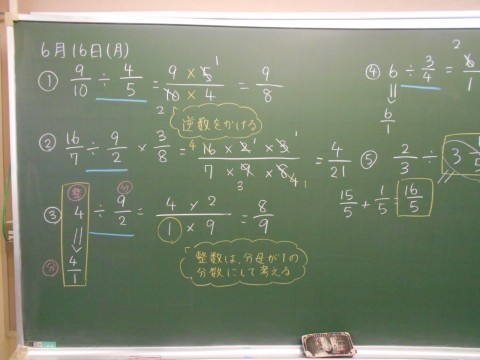 6月16日(月)
① 9/10 ÷ 4/5 = 9×5/10×4 = 9/8
1
2
逆数をかける
② 16/7 ÷ 9/2 × 3/8 = 16×2×3/7×9×8 = 4/21
4 1 1
3 4 1
整 分
③ 4 ÷ 9/2 = 4×2/1×9 = 8/9
分 4/1
整数は、分母が1の
分数にして考える
④ 6 ÷ 3/4 = 6/1
2
6/1
⑤ 2/3 ÷ 3 1/5
15/5 + 1/5 = 16/5